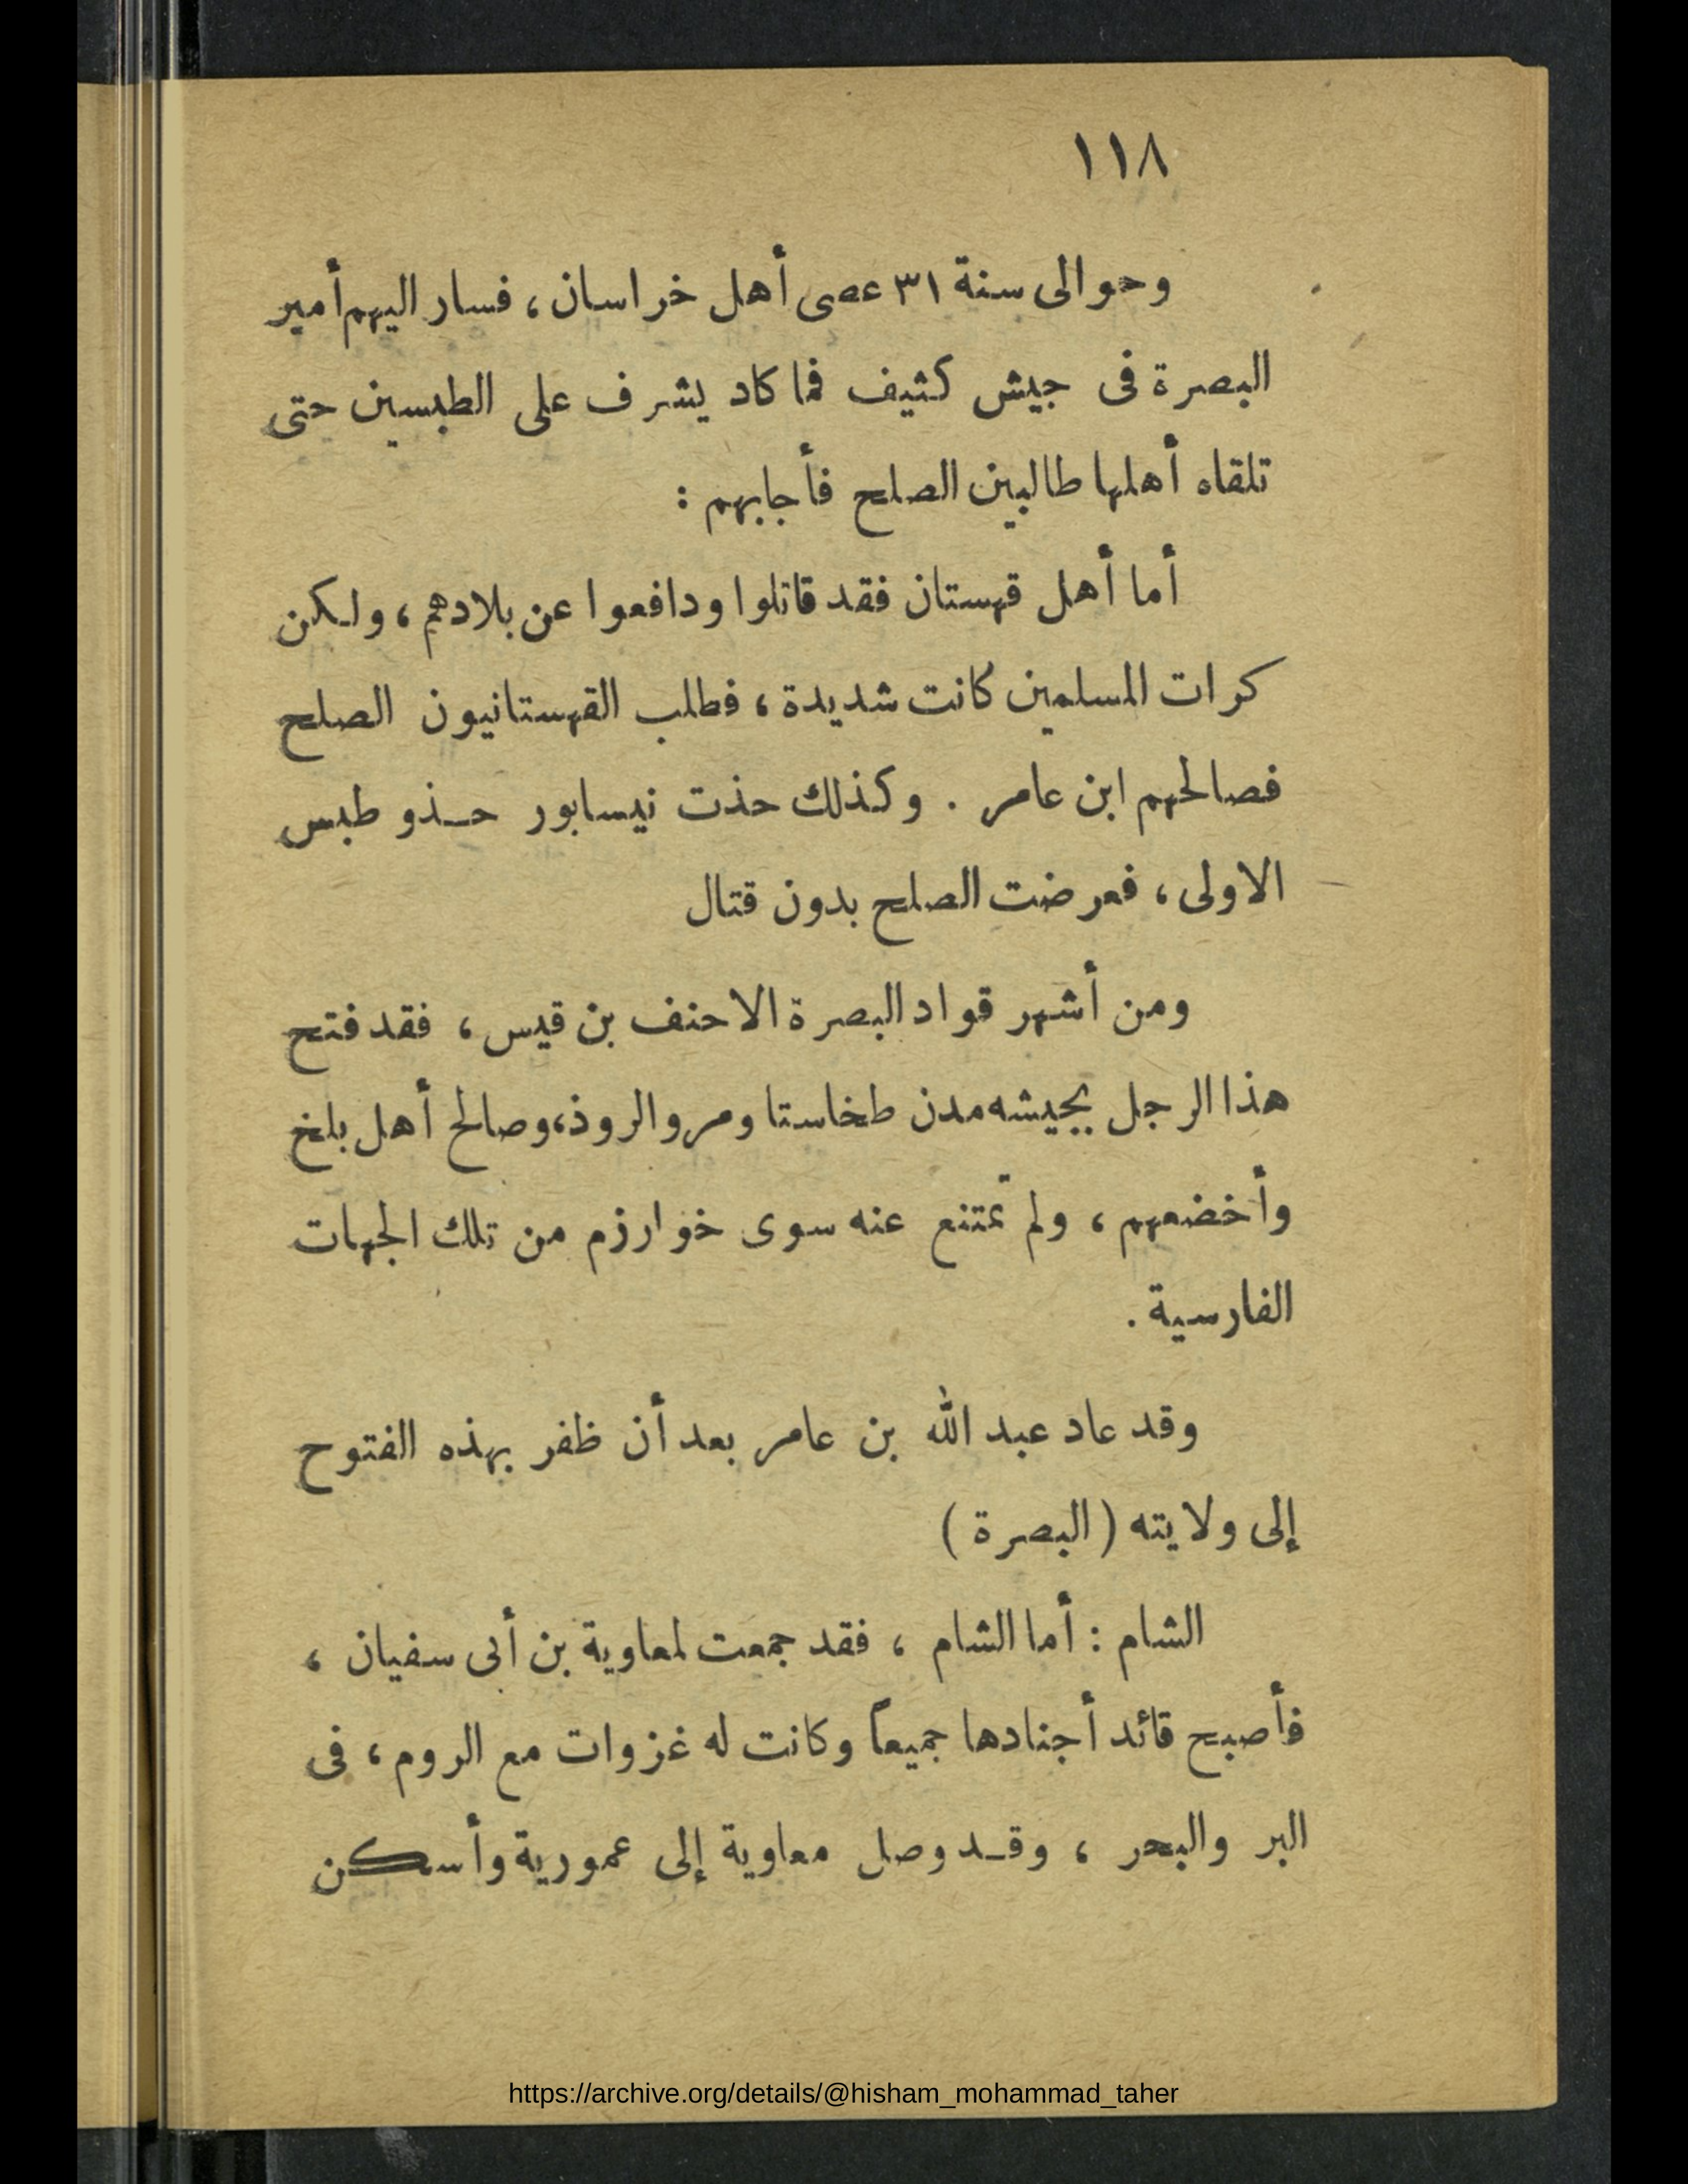 ١١٨
وحوالى سنة ٣١ عصى أهل خراسان ، فسار اليهم أمير
البصرة فى جيش كثيف فما كاد يشرف على الطبسين حتى
تلقاه أهلها طالبين الصلح فأجابهم :
أما أهل قهستان فقد قاتلوا ودافعوا عن بلادهم ، ولكن
كرات المسلمين كانت شديدة ، فطلب القهستانيون الصلح
فصالحهم ابن عامر . وكذلك حذت نيسابور حذو طبس
الاولى ، فعرضت الصلح بدون قتال
ومن أشهر قواد البصرة الاحنف بن قيس ، فقد فتح
هذا الرجل بجيشه مدن طخاستا ومرو الروذ، وصالح أهل بلخ
وأخضعهم ، ولم تمتنع عنه سوى خوارزم من تلك الجهات
الفارسية .
وقد عاد عبد الله بن عامر بعد أن ظفر بهذه الفتوح
إلى ولايته ( البصرة )
الشام : أما الشام ، فقد جمعت لمعاوية بن أبى سفيان ،
فأصبح قائد أجنادها جميعاً وكانت له غزوات مع الروم ، فى
البر والبحر ، وقد وصل معاوية إلى عمورية وأسكن
https://archive.org/details/@hisham_mohammad_taher